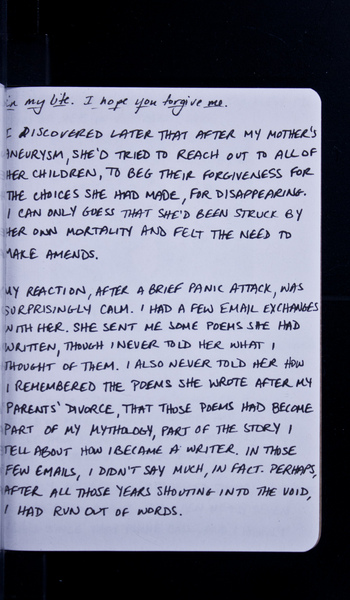 in my life. I hope you forgive me.
I DISCOVERED LATER THAT AFTER MY MOTHER'S
ANEURYSM, SHE'D TRIED TO REACH OUT TO ALL OF
HER CHILDREN, TO BEG THEIR FORGIVENESS FOR
THE CHOICES SHE HAD MADE, FOR DISAPPEARING.
I CAN ONLY GUESS THAT SHE'D BEEN STRUCK BY
HER OWN MORTALITY AND FELT THE NEED TO
MAKE AMENDS.
MY REACTION, AFTER A BRIEF PANIC ATTACK, WAS
SURPRISINGLY CALM. I HAD A FEW EMAIL EXCHANGES
WITH HER. SHE SENT ME SOME POEMS SHE HAD
WRITTEN, THOUGH I NEVER TOLD HER WHAT I
THOUGHT OF THEM. I ALSO NEVER TOLD HER HOW
I REMEMBERED THE POEMS SHE WROTE AFTER MY
PARENTS' DIVORCE, THAT THOSE POEMS HAD BECOME
PART OF MY MYTHOLOGY, PART OF THE STORY I
TELL ABOUT HOW I BECAME A WRITER. IN THOSE
FEW EMAILS, I DIDN'T SAY MUCH, IN FACT. PERHAPS,
AFTER ALL THOSE YEARS SHOUTING INTO THE VOID,
I HAD RUN OUT OF WORDS.